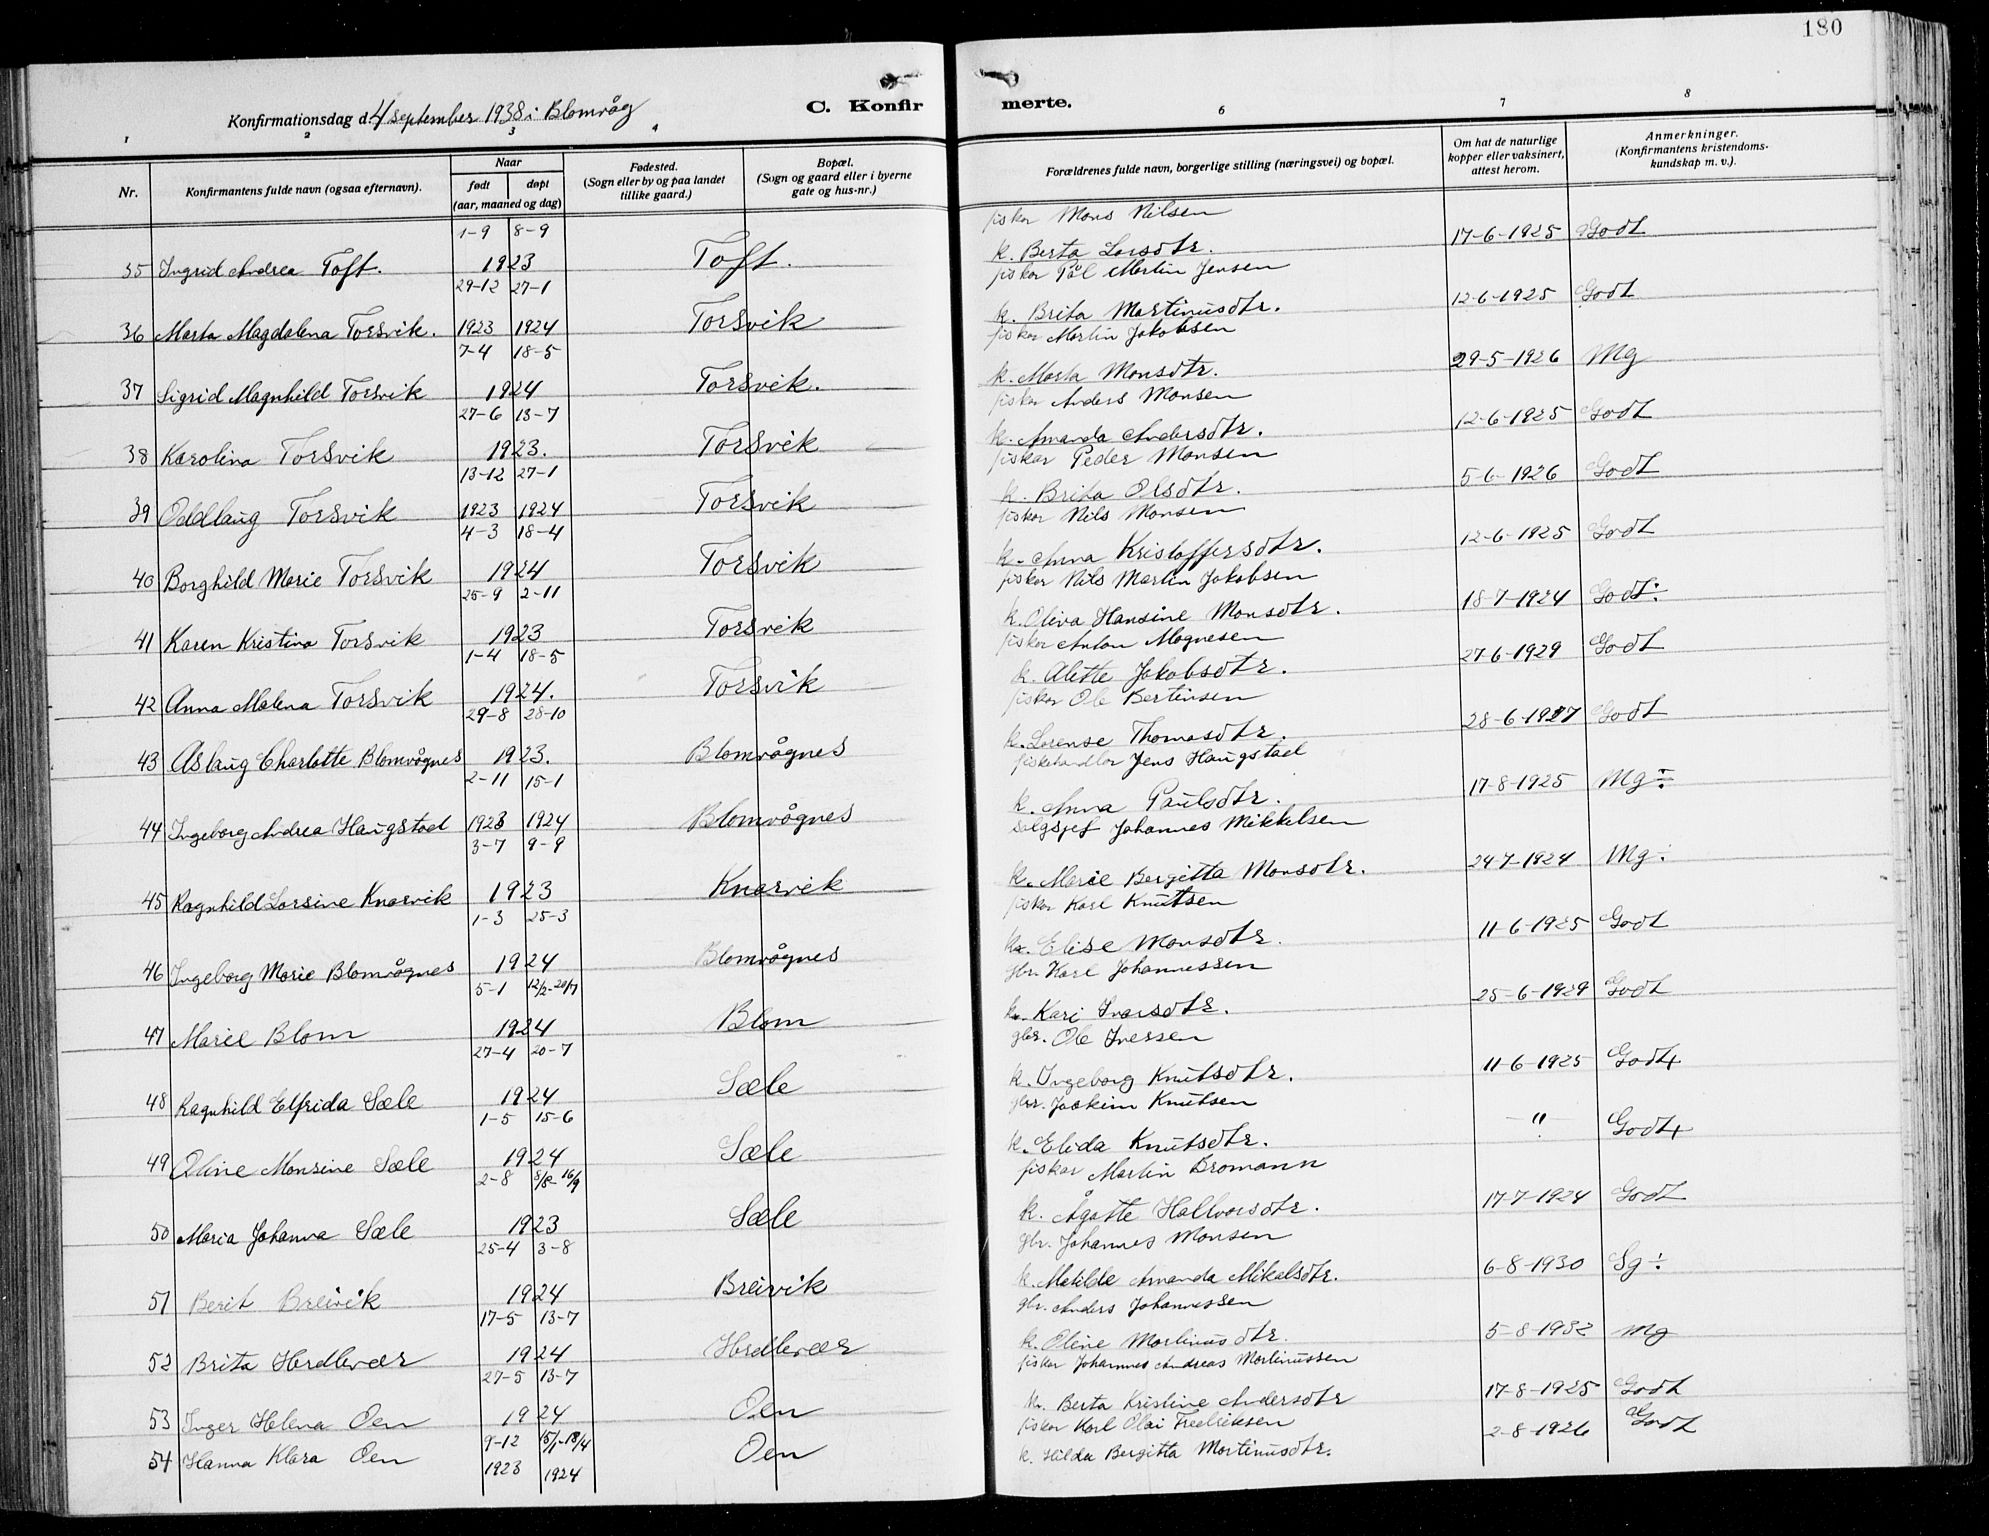 180
Konfirmationsdag d. 4 september 1938 i Blomvåg
C. Konfirmerte.
1 2 3 4 6 7 8
Nr.
Konfirmantens fulde navn (ogsaa efternavn).
Naar
født døpt
(aar, maaned og dag)
Fødested.
(Sogn eller by og paa landet
tillike gaard.)
Bopæl.
(Sogn og gaard eller i byerne
gate og hus-nr.)
Forældrenes fulde navn, borgerlige stilling (næringsvei) og bopæl.
Om hat de naturlige
kopper eller vaksinert,
attest herom.
Anmerkninger.
(Konfirmantens kristendoms-
kundskap m. v.).
1-9 8-9 fisker Mons Nilsen
35 Ingrid Andrea Toft. 1923 Toft. k. Berta Larsdtr. 17-6-1925 Godt
29-12 27-1 fisker Pål Martin Jensen
36 Marta Magdalena Torsvik. 1923 1924 Torsvik k. Brita Martinusdtr. 12-6-1925 Godt
7-4 18-5 fisker Martin Jakobsen
37 Sigrid Magnhild Torsvik 1924 Torsvik. k. Marta Monsdtr. 29-5-1926 Mg
27-6 13-7 fisker Anders Monsen
38 Karolina Torsvik 1923. Torsvik k. Amanda Andersdtr. 12-6-1925 Godt
13-12 27-1 fisker Peder Monsen
39 Oddlaug Torsvik 1923 1924 Torsvik k. Brita Olsdtr. 5-6-1926 Godt
4-3 18-4 fisker Nils Monsen
40 Borghild Marie Torsvik 1924 Torsvik k. Anna Kristoffersdtr. 12-6-1925 Godt
25-9 2-11 fisker Nils Martin Jakobsen
41 Karen Kristina Torsvik 1923 Torsvik k. Oliva Hansine Monsdtr. 18-7-1924 Godt÷
1-4 18-5 fisker Anton Magnesen
42 Anna Malena Torsvik 1924. Torsvik k. Alette Jakobsdtr. 27-6-1929 Godt
29-8 28-10 fisker Ole Bertinsen
43 Aslaug Charlotte Blomvågnes 1923. Blomvågnes k. Lorense Thomasdtr. 28-6-1927 Godt
2-11 15-1 fiskehandler Jens Haugstad
44 Ingeborg Andrea Haugstad 1923 1924 Blomvågnes k. Anna Paulsdtr. 17-8-1925 Mg÷
3-7 9-9 salgsjef Johannes Mikkelsen
45 Ragnhild Larsine Knarvik 1923 Knarvik k. Marie Bergitta Monsdtr. 24-7-1924 Mg÷
1-3 25-3 fisker Karl Knutsen
46 Ingeborg Marie Blomvågnes 1924 Blomvågnes k. Elise Monsdtr. 11-6-1925 Godt
5-1 12/2-20/7 gbr. Karl Johannessen
47 Marie Blom 1924 Blom k. Kari Ivarsdtr. 25-6-1929 Godt
27-4 20-7 gbr. Ole Iversen
48 Ragnhild Elfrida Sæle 1924 Sæle k. Ingeborg Knutsdtr. 11-6-1925 Godt+
1-5 15-6 gbr. Joakim Knutsen
49 Oline Monsine Sæle 1924 Sæle k. Elida Knutsdtr. -"- Godt+
2-8 8/8-16/9 fisker Martin Bromann
50 Maria Johanna Sæle 1923 Sæle k. Ågatte Hallvorsdtr. 17-7-1924 Godt
25-4 3-8 gbr. Johannes Monsen
51 Berit Breivik 1924 Breivik k. Matilde Amanda Mikalsdtr. 6-8-1930 Sg÷
17-5 13-7 gbr. Anders Johannessen
52 Brita Herdlevær 1924 Herdlevær k. Oline Martinusdtr. 5-8-1932 Mg
27-5 13-7 fisker Johannes Andreas Martinussen
53 Inger Helena Oen 1924 Oen k. Berta Kristine Andersdtr 17-8-1925 Godt
9-12 15/1-13/4 fisker Karl Olai Fredriksen
54 Hanna Klara Oen 1923 1924 Oen k. Hilda Bergitta Martinusdtr. 2-8-1926 Godt